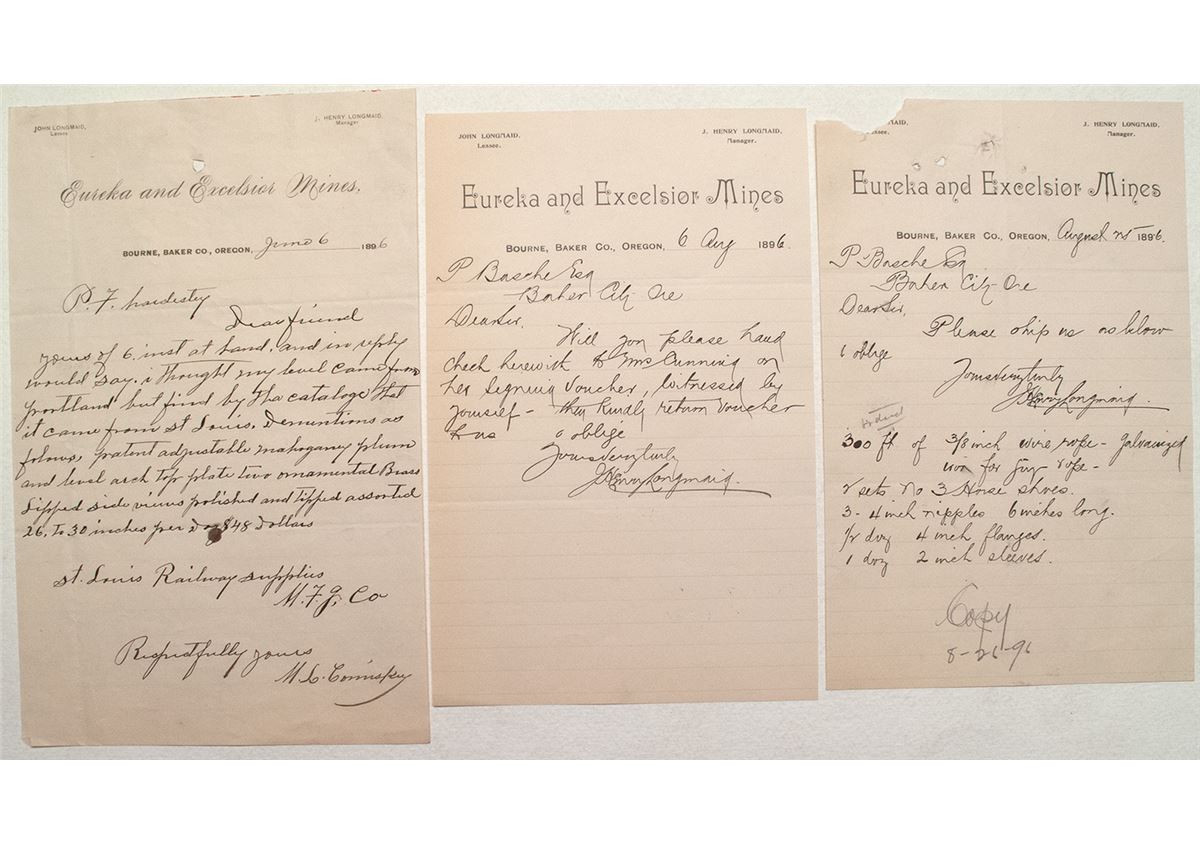 JOHN LONGMAID,
Lessee.
J. HENRY LONGMAID,
Manager
Eureka and Excelsior Mines.
BOURNE, BAKER CO., OREGON, June 6 1896
P. F. hardesty
Dear friend
yours of 6. inst at hand, and in reply
would say. i thought my level came from
portland but find by tha cataloge that
it came from St Louis. Demintions as
folows, patent adjustable mahogany plum
and level arch top plate two ornamental Brass
Lipped side views polished and tipped assorted
26, to 30 inches per Doz $48 Dollars
St. Louis Railway supplies
M.F.G. Co
Respectfully yours
M. C. Cominsky
JOHN LONGMAID,
Lessee.
J. HENRY LONGMAID,
Manager.
Eureka and Excelsior Mines
BOURNE, BAKER CO., OREGON, 6 Aug 1896.
P Basche Esq
Baker City Ore
Dear Sir,
Will you please hand
check herewith to Mrs Cunning on
her signing voucher, witnessed by
yourself - then kindly return voucher
to us & oblige
Yours very truly
J Henry Longmaid.
AID,
Lessee.
J. HENRY LONGMAID,
Manager.
Eureka and Excelsior Mines
BOURNE, BAKER CO., OREGON, August 25 1896.
P Basche Esq
Baker City Ore
Dear Sir,
Please ship us as below
& oblige
Yours very truly
J Henry Longmaid.
300 ft of 3/8 inch wire rope - Galvanized
iron for rope -
2 sets No 3 Horse shoes.
3 - 4 inch nipples 6 inches long.
1/2 doz 4 inch flanges.
1 doz 2 inch sleeves.
Copy
8-26-96